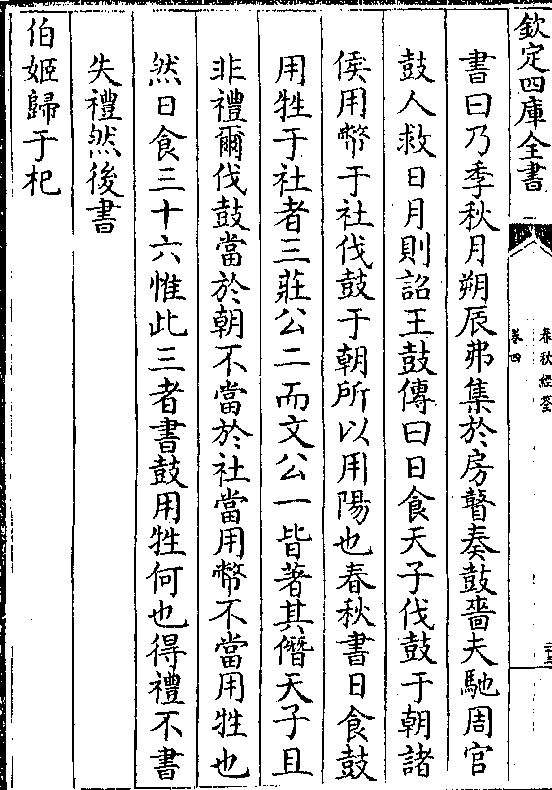 欽定四庫全書
春秋經筌
卷四
書曰乃季秋月朔辰弗集於房瞽奏鼓嗇夫馳周官
鼓人救日月則詔王鼓傳曰日食天子伐鼓于朝諸
侯用幣于社伐鼓于朝所以用陽也春秋書日食鼓
用牲于社者三莊公二而文公一皆著其僭天子且
非禮爾伐鼓當於朝不當於社當用幣不當用牲也
然日食三十六惟此三者書鼓用牲何也得禮不書
失禮然後書
伯姬歸于杞